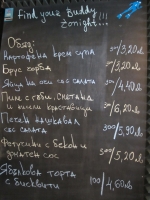 Find your Buddy
tonight...
Обяд:
Картофена крем супа 300/3,20лв
Боб чорба 300/3,20лв
Яйца на очи със салата 4,40лв
Пиле с гъби, сметана
и кисели краставици 300/6,20лв
Печен кашкавал
със салата 300/5,90лв
Фетучини с бекон и
доматен сос 300/5,20лв
Ябълкова торта
с бисквити 100/4,60лв